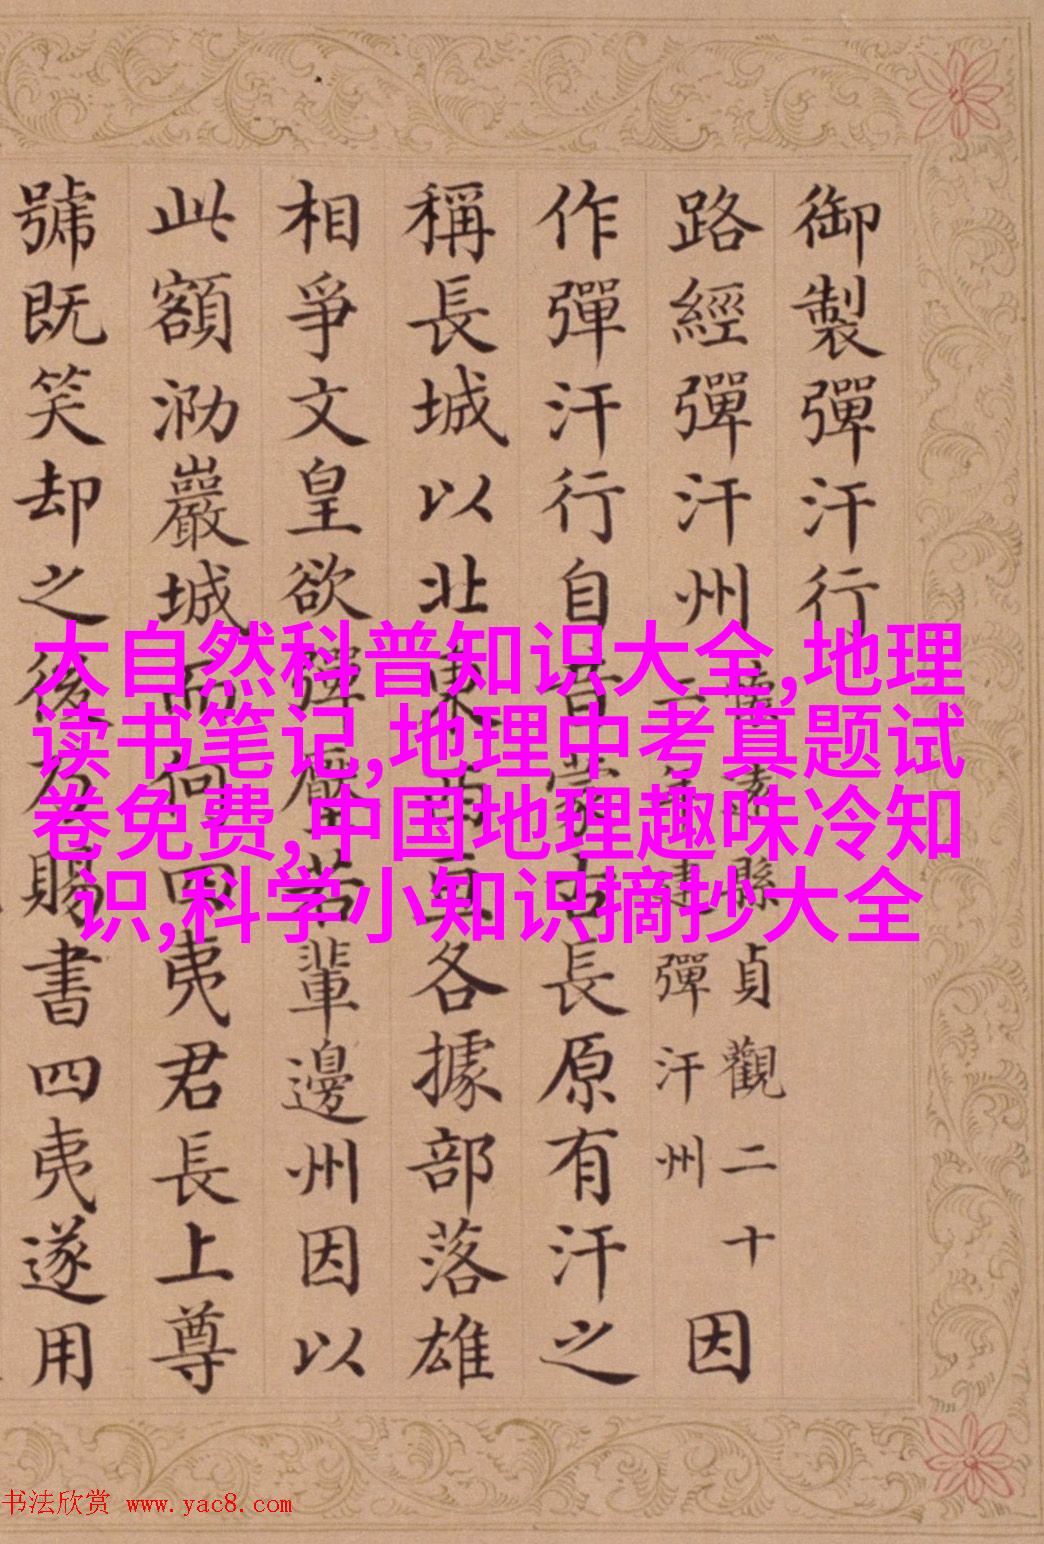 御製彈汗行
路經彈汗州
遠縣貞觀二十
二年建彈汗州
因
作彈汗行自昔蒙古長原有汗之
稱長城以北東西互各據部落雄
相爭文皇欲彈壓若輩邊州因以
此額泐巖城而何四夷君長上尊
號既笑却之後乃賜書四夷遂用
大自然科普知识大全,地理
读书笔记,地理中考真题试
卷免费,中国地理趣味冷知
识,科学小知识摘抄大全
书法欣赏 www.yac8.com